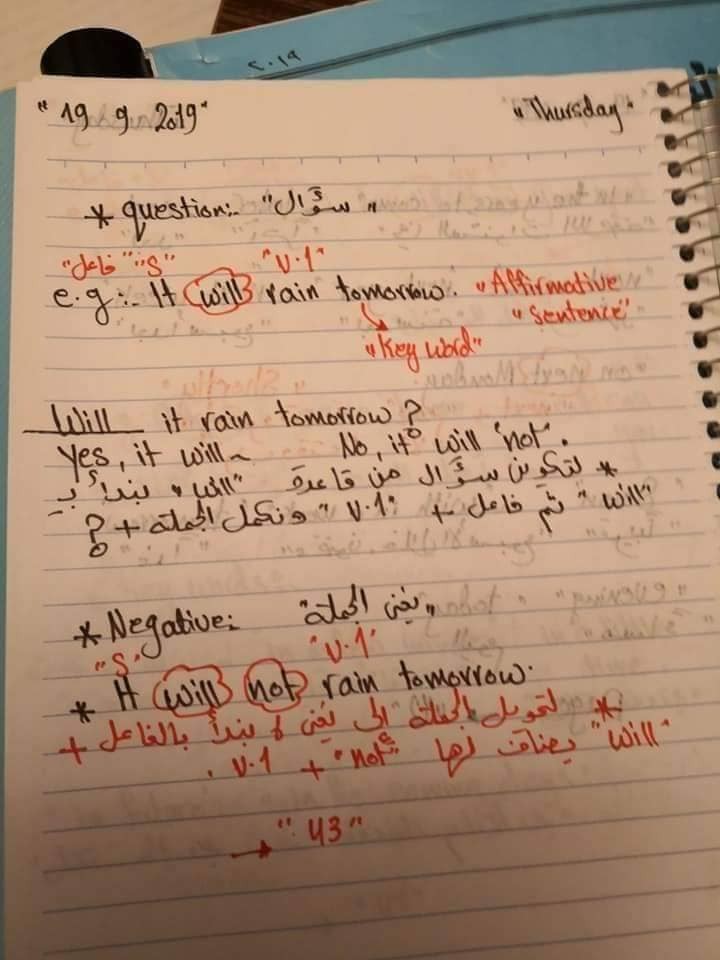 ٢٠١٩
"19 9 2019" "Thursday"
* question:- "سؤال"
"فاعل" "S" "V.1"
e.g:- It will rain tomorrow. "Affirmative
"Sentence"
"Key word"
Will it rain tomorrow?
Yes, it will. No, it will "not".
* لتكوين سؤال من قاعدة "will" نبدأ بـ
"will" ثم فاعل + "V.1" ونكمل الجملة + ?
* Negative: "نفي الجملة"
"S" "V.1"
* It will not rain tomorrow.
* لتحويل الجملة الى نفي نبدأ بالفاعل +
"will" يضاف لها "not" + V.1 .
"43"